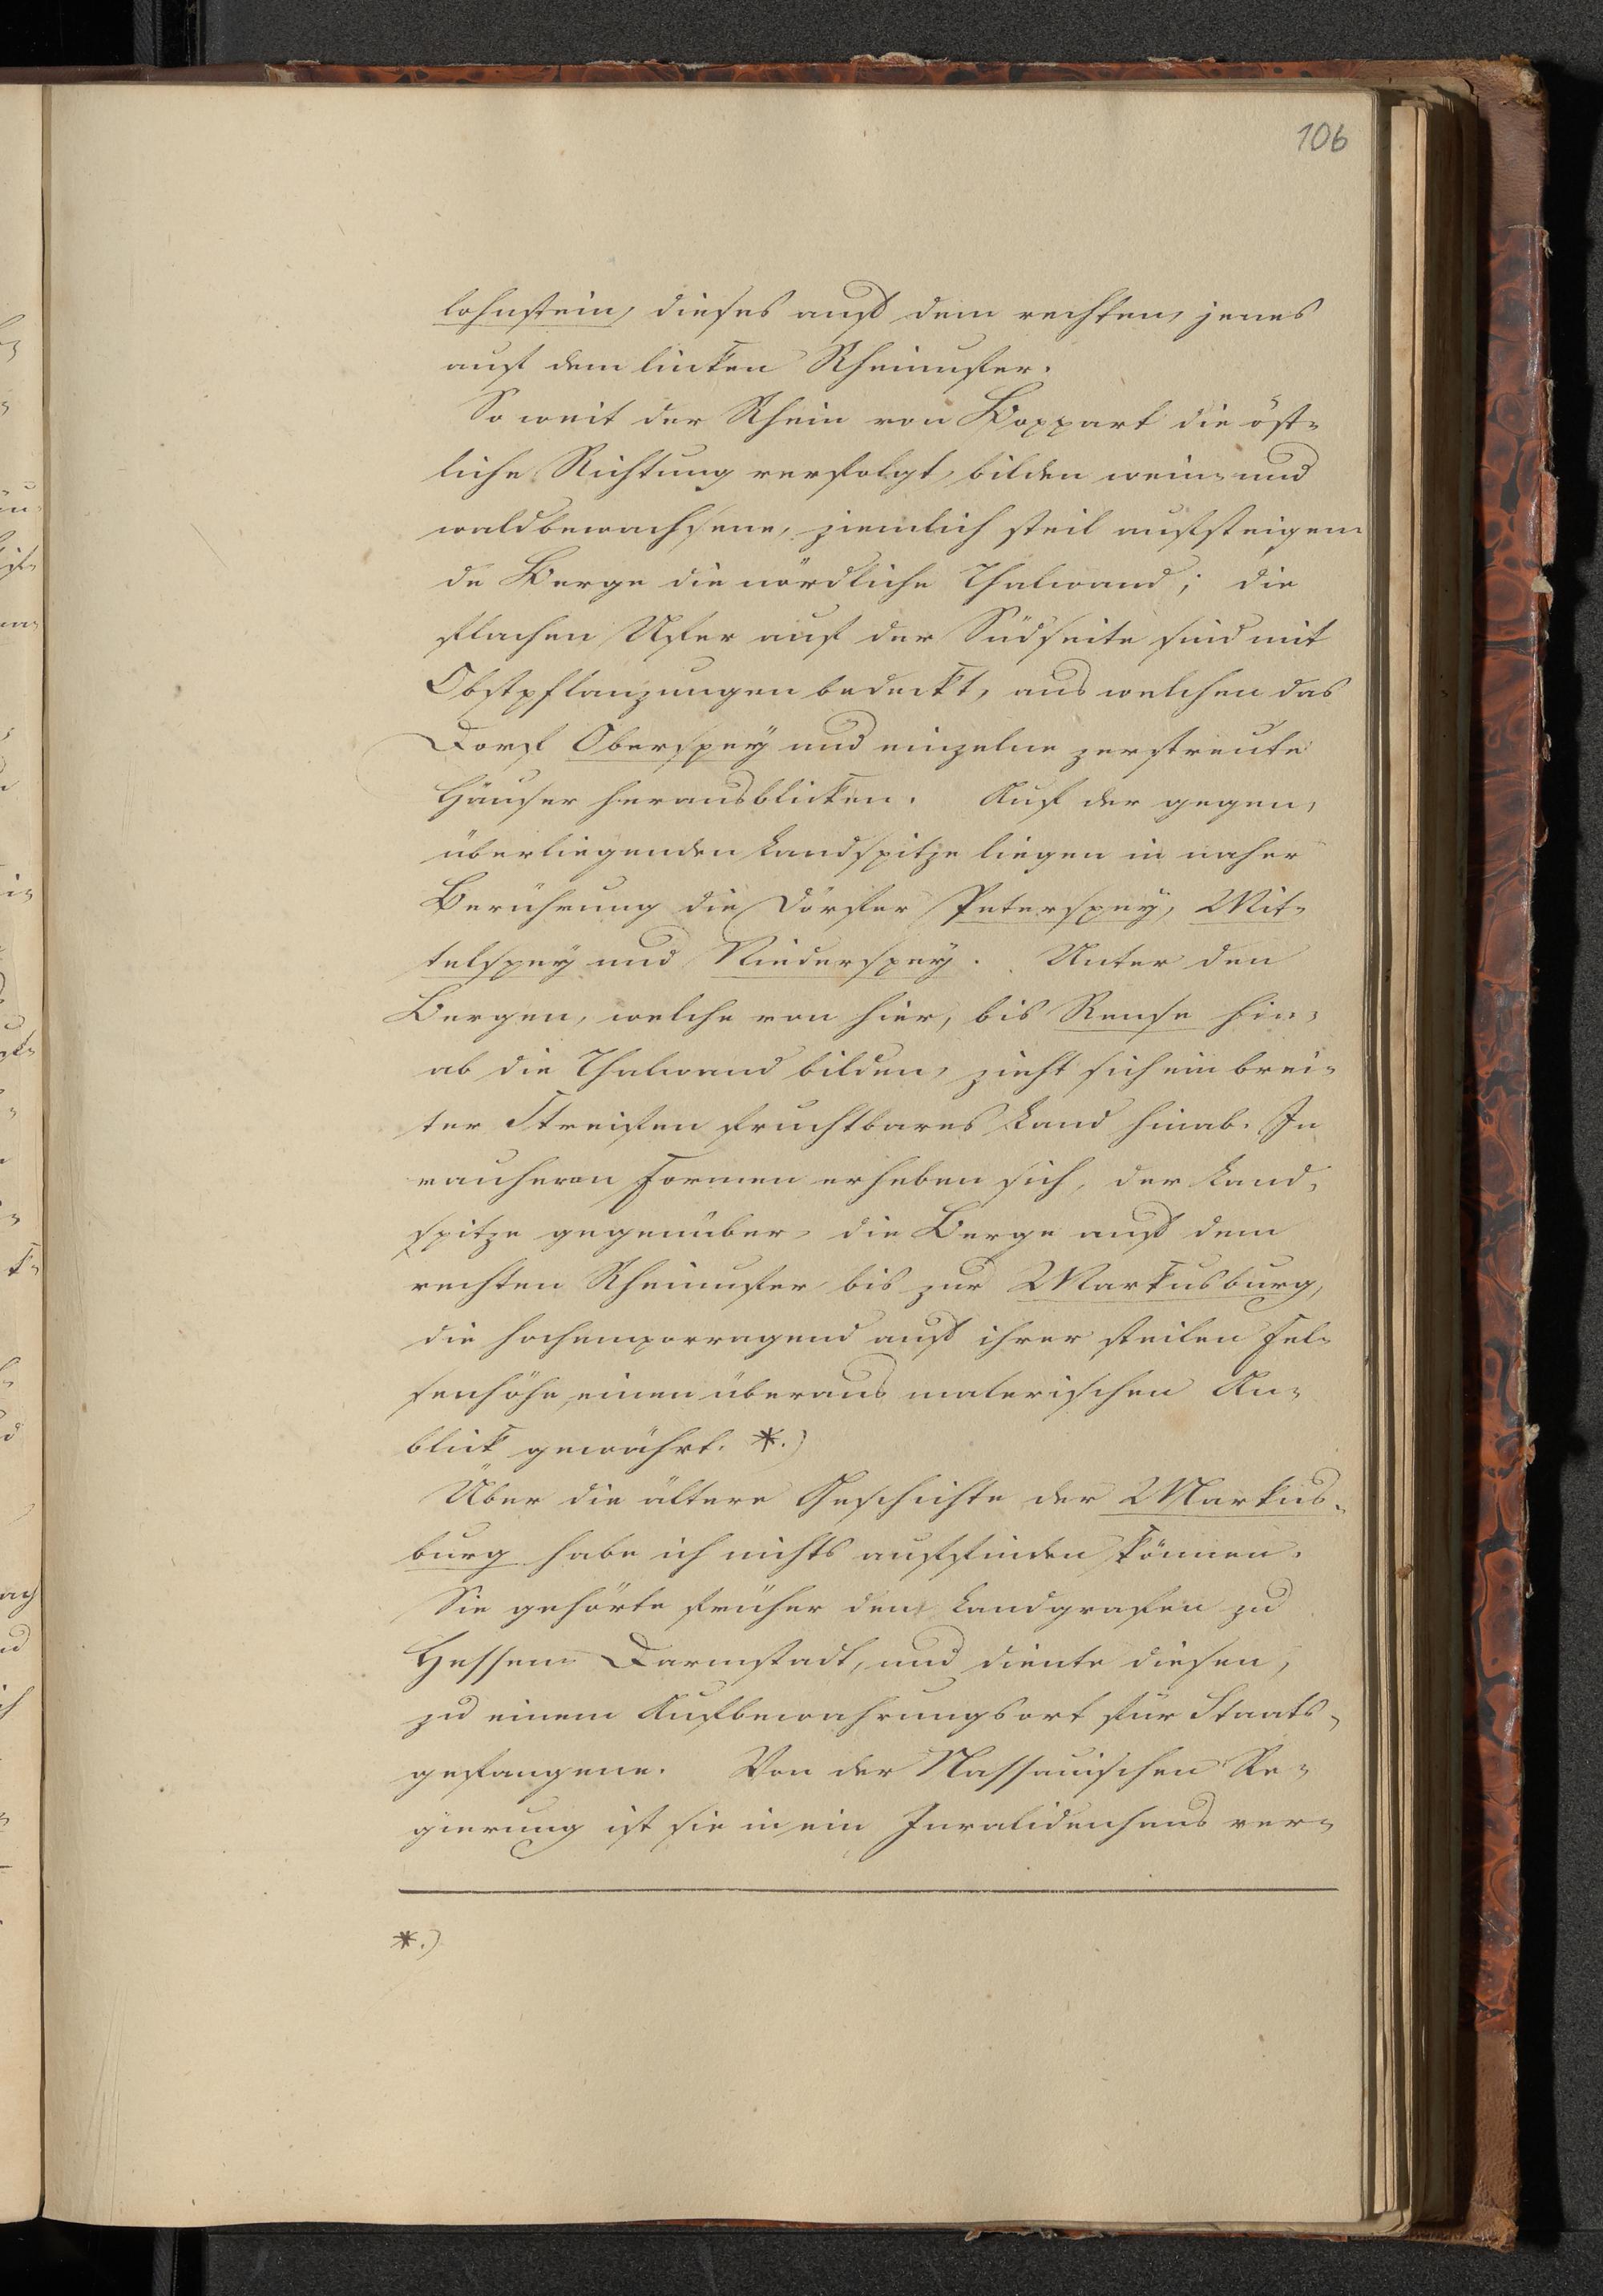 106
lohnstein, dieses auf dem rechten, jenes
auf dem linken Rheinufer.
So weit der Rhein von Boppart die öst-
liche Richtung verfolgt, bilden wein- und
waldbewachsene, ziemlich steil aufsteigen-
de Berge die nördliche Thalwand; die
flachen Ufer auf der Südseite sind mit
Obstpflanzungen bedeckt, aus welchen das
Dorf Oberspey und einzelne zerstreute
Häuser herausblicken. Auf der gegen-
überliegenden Landspitze liegen in naher
Berührung die Dörfer Peterspey, Mit-
telspey und Niederspey. Unter den
Bergen, welche von hier, bis Rense hin-
ab die Thalwand bilden, zieht sich ein brei-
ter Streifen fruchtbares Land hinab. In
rauheren Formen erheben sich, der Land-
spitze gegenüber, die Berge auf dem
rechten Rheinufer bis zur Markusburg,
die hochemporragend auf ihrer steilen Fel-
senhöhe, einen überaus malerischen An-
blick gewährt. *.)
Über die ältere Geschichte der Markus-
burg habe ich nichts auffinden können.
Sie gehörte früher den Landgrafen zu
Hessen-Darmstadt, und diente diesen,
zu einem Aufbewahrungsort für Staats-
gefangene. Von der Nassauischen Re-
gierung ist sie in ein Invalidenhaus ver-
*.)